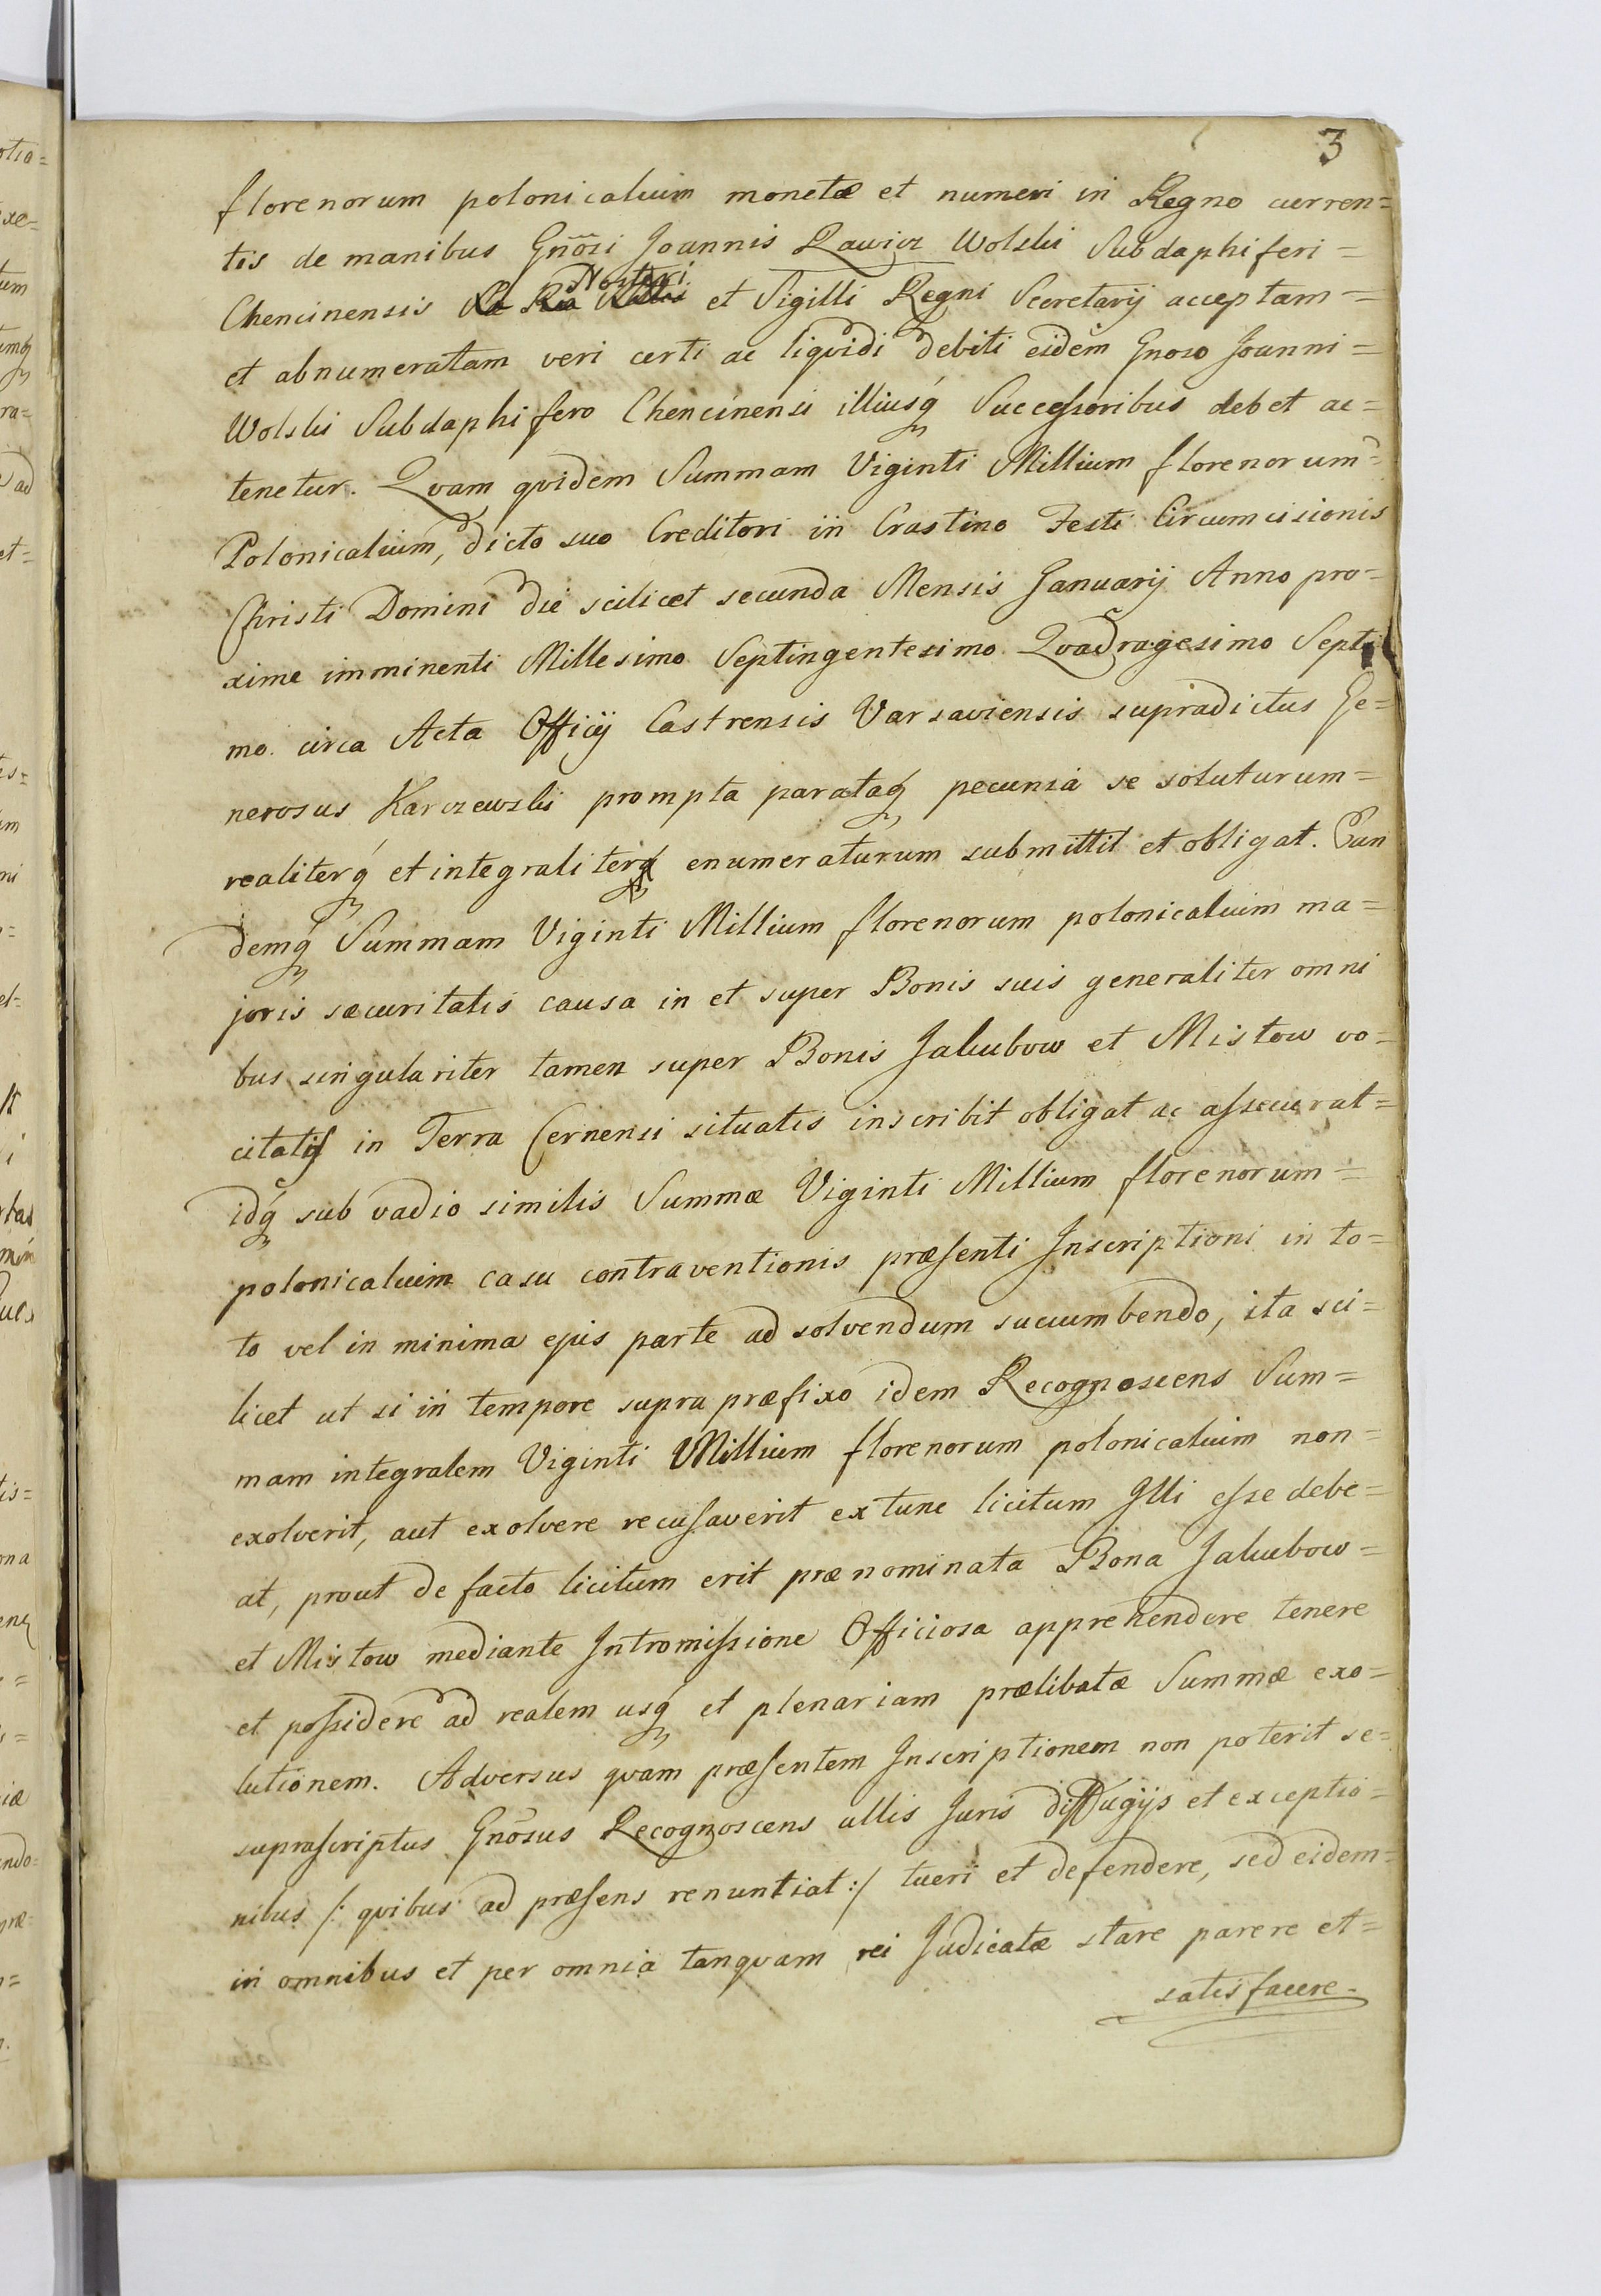 3
florenorum polonicalium monetæ et numeri in Regno curren=
tis de manibus Gnõsi Joannis Rawicz Wolski Subdaphiferi=
Chencinensis Nostri et Sigilli Regni Secretarij acceptam=
et abnumeratam veri certi ac liqvidi debiti eidem Gnoso Joanni=
Wolski Subdaphifero Chencinensi illiusq́ Successoribus debet ac=
tenetur. Qvam qvidem Summam Viginti Millium florenorum=
Polonicalium, dicto suo Creditori in Crastino Festi Circumcisionis
Christi Domini die scilicet secunda Mensis Januarij Anno pro=
xime imminenti Millesimo Septingentesimo Qvadragesimo Septi
mo. circa Acta Officij Castrensis Varsaviensis supradictus Ge=
nerosus Karczewski prompta parataq́ pecunia se soluturum=
realiterq́ et integraliterq́ enumeraturum submittit et obligat. Ean
demq́ Summam Viginti Millium florenorum polonicalium ma=
joris sæcuritatis causa in et super Bonis suis generaliter omni
bus singulariter tamen super Bonis Jakubow et Mistow vo=
citatis in Terra Cernensi situatis inscribit obligat ac assecurat=
idq́ sub vadio similis Summæ Viginti Millium florenorum=
polonicalium casu contraventionis præsenti Inscriptioni in to=
to vel in minima ejus parte ad solvendum succumbendo, ita sci=
licet ut si in tempore supra præfixo idem Recognoscens Sum=
mam integralem Viginti Millium florenorum polonicalium non=
exolverit, aut exolvere recusaverit extunc licitum Illi esse debe=
at, prout de facto licitum erit prænominata Bona Jakubow=
et Mistow mediante Intromissione Officiosa apprehendere tenere
et possidere ad realem usq́ et plenariam prælibatæ Summæ exo=
lutionem. Adversus qvam præsentem Inscriptionem non poterit se=
suprascriptus Gnõsus Recognoscens ullis Juris diffugijs et exceptio=
nibus /: qvibus ad præsens renuntiat :/ tueri et defendere, sed eidem=
in omnibus et per omnia tanqvam rei Judicatæ stare parere et=
satisfacere.